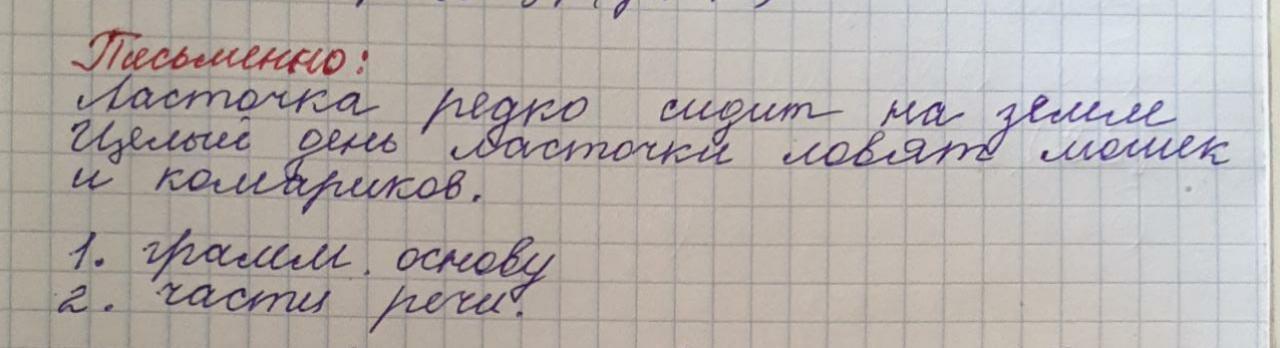 Письменно:
Ласточка редко сидит на земле
Целый день ласточки ловят мошек
и комариков.
1. грамм. основу
2. части речи.